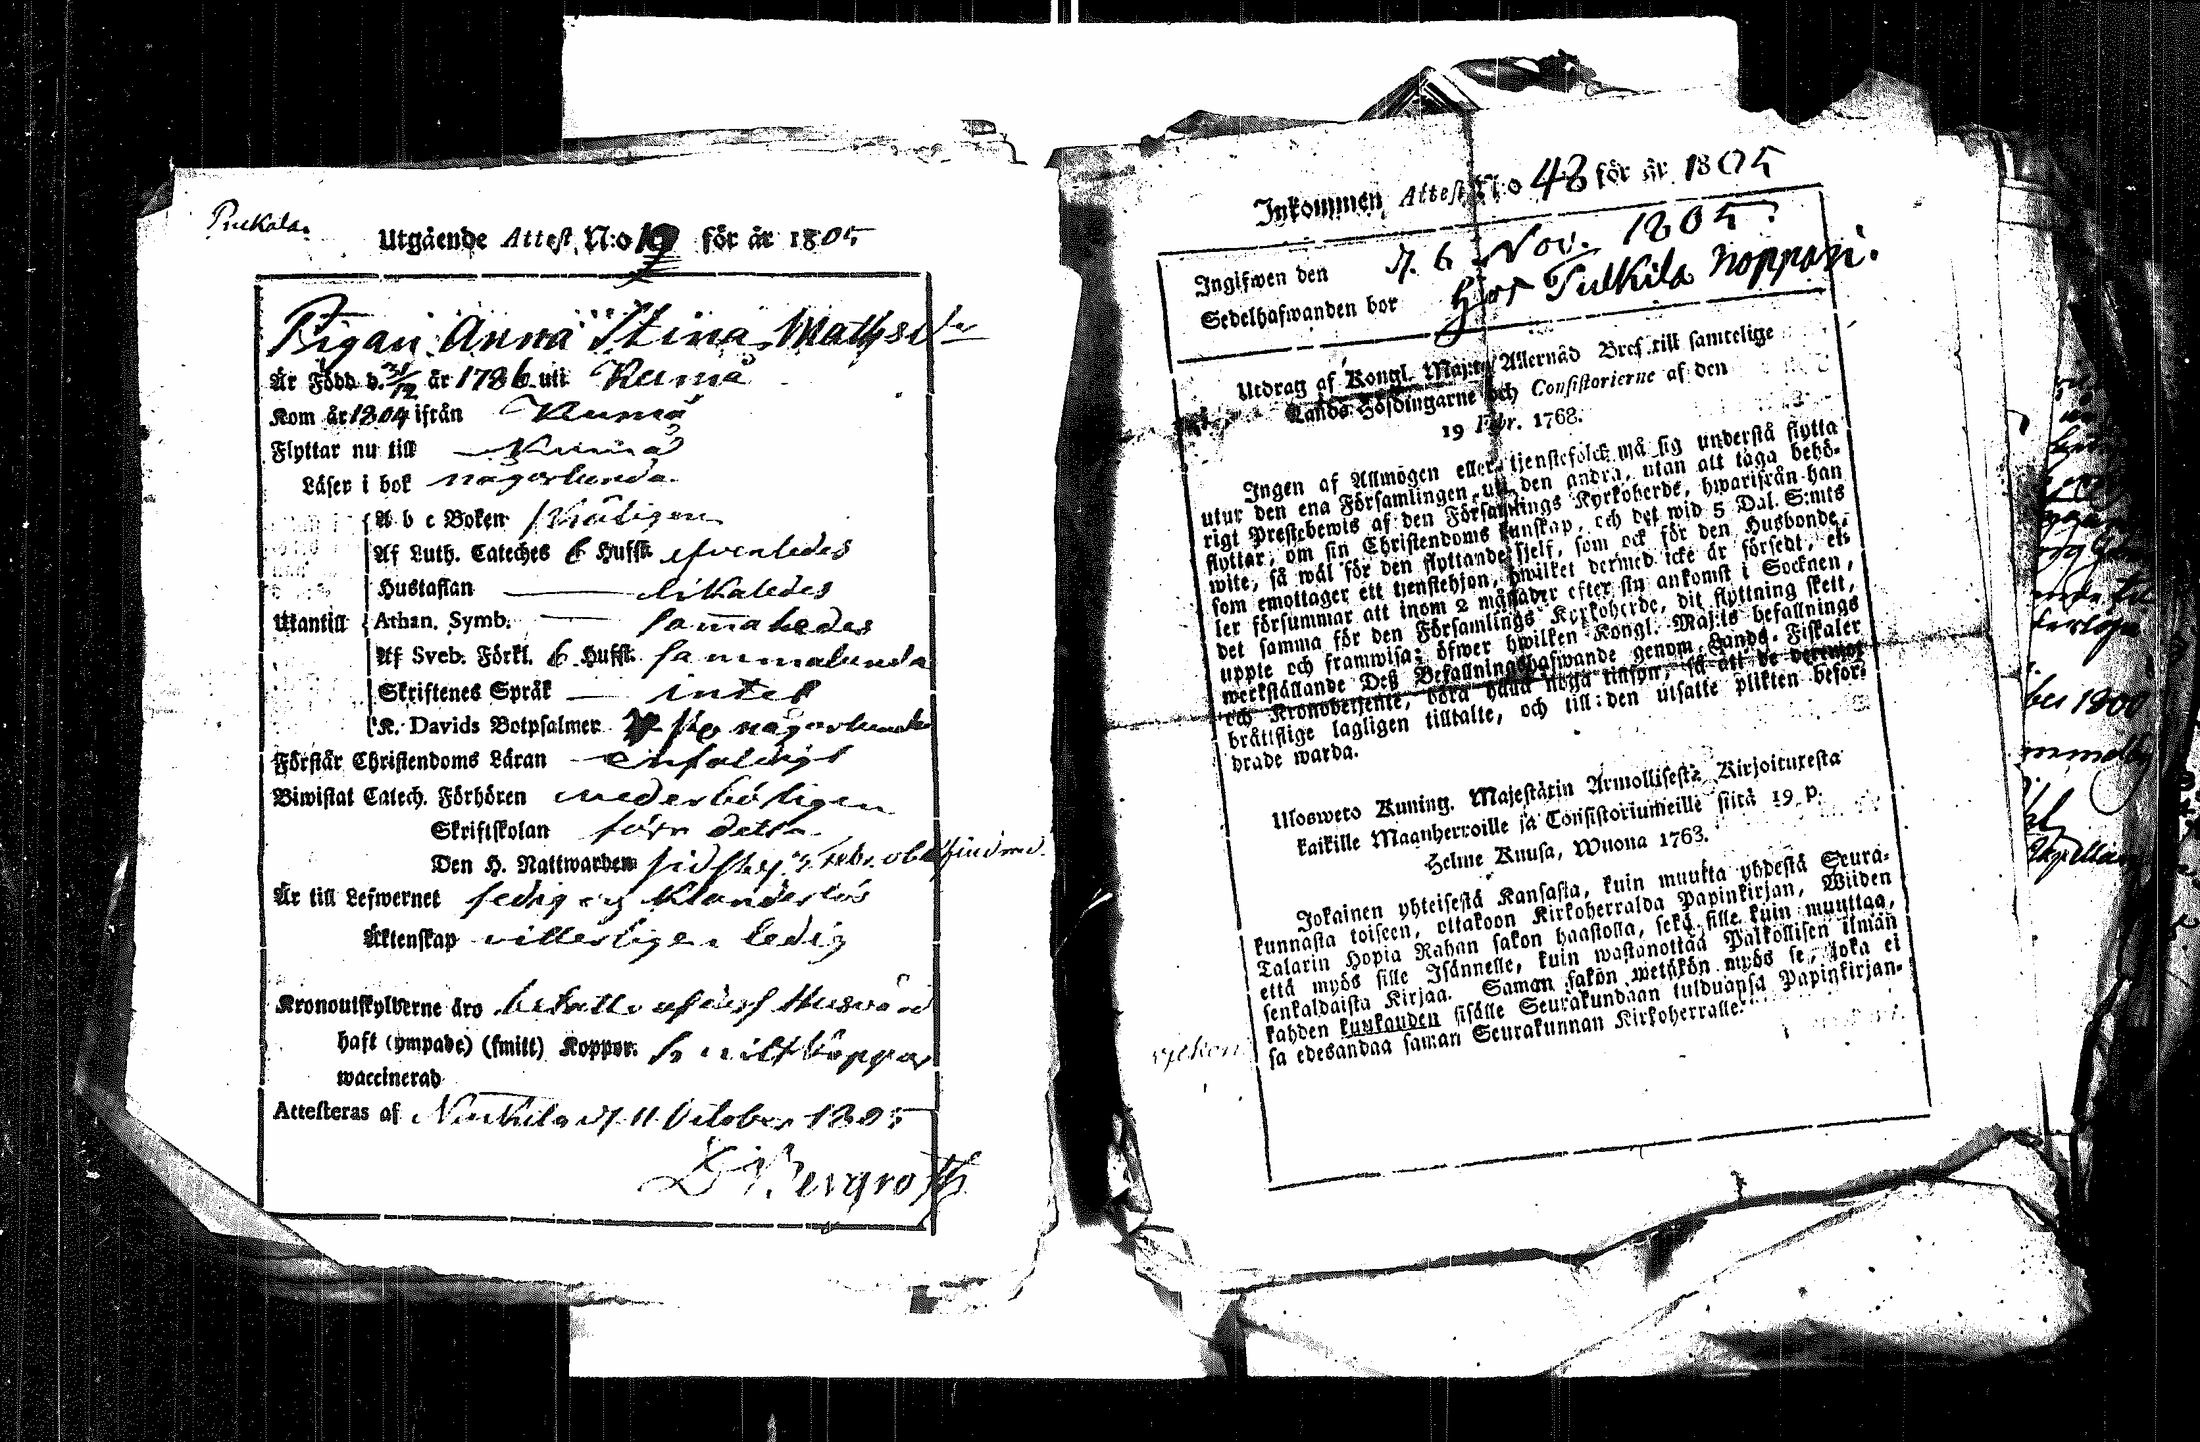 Utgående Attest N:o 19 för år 1805
Pigan Anna Stina Mattsdr
Är Född d. 31/12 år 1786 uti Kumå
Kom år 1804 ifrån Kumå
Flyttar nu till Kumå
Läser i bok någorlunda
A b c Boken skäligen
Af Luth. Cateches 6 Hufst. efvenledes
Hustaflan likaledes
Utantill Athan. Symb. samaledes
Af Sveb. Förkl. 6 Hufst. sammalunda
Skriftenes Språk intet
K. Davids Botpsalmer någorlunda
Förstår Christendoms Läran enfaldigt
Biwistat Catech. Förhören wederbörligen
Skriftskolan förr detta
Den H. Nattwarden sidst
Är till Lefwernet sedig och klanderlös
Äktenskap villerligen ledig
Kronoutskylderne äro betalte af dess Husbond
haft (ympade) (smitt) Koppor. smittkoppor
waccinerad
Attesteras af d. 11 October 1805
D Bergroth
Inkommen Attest N:o 48 för år 1805
Ingifwen den d. 6 Nov. 1805.
Sedelhafwanden bor hos Tulkila Noppari.
Utdrag af Kongl. Maj:ts Allernåd Bref till samtelige
Lands Höfdingarne och Consistorierne af den
19 Febr. 1768.
Ingen af Allmogen eller tjenstefolck må sig understå flytta
utur den ena Församlingen uti den andra, utan att taga behö-
rigt Prestebewis af den Församlings Kyrkoherde, hwarifrån han
flyttar, om sin Christendoms kunskap, och det wid 5 Dal. S:mts
wite, så wäl för den flyttande sjelf, som ock för den Husbonde,
som emottager ett tjenstehjon, hwilket dermed icke är försedt, el-
ler försummar att inom 2 månader efter sin ankomst i Socknen,
det samma för den Församlings Kyrkoherde, dit flyttning skett,
uppte och framwisa; öfwer hwilken Kongl. Maj:ts befallnings
werkställande Deß Befallningshafwande genom Lands-Fiskaler
och Kronobetjente, böra hafwa noga tillsyn, så att de deremot
bråttslige lagligen tilltalte, och till den utsatte plikten beför-
drade warda.
Ulosweto Kuning. Majestätin Armollisesta Kirjoituxesta
kaikille Maanherroille ja Consistoriumeille siitä 19 p.
Helme Kuusa, Wuona 1763.
Jokainen yhteisestä Kansasta, kuin muutta yhdestä Seura-
kunnasta toiseen, ottakoon Kirkoherralda Papinkirjan, Wiiden
Talarin Hopia Rahan sakon haastolla, sekä sille kuin muuttaa,
että myös sille Isännelle, kuin wastanottaa Palkollisen ilman
senkaldaista Kirjaa. Saman sakon wetäkön myös se, joka ei
kahden kuukauden sisälle Seurakundaan tulduansa Papinkirjan-
sa edesandaa saman Seurakunnan Kirkoherralle.